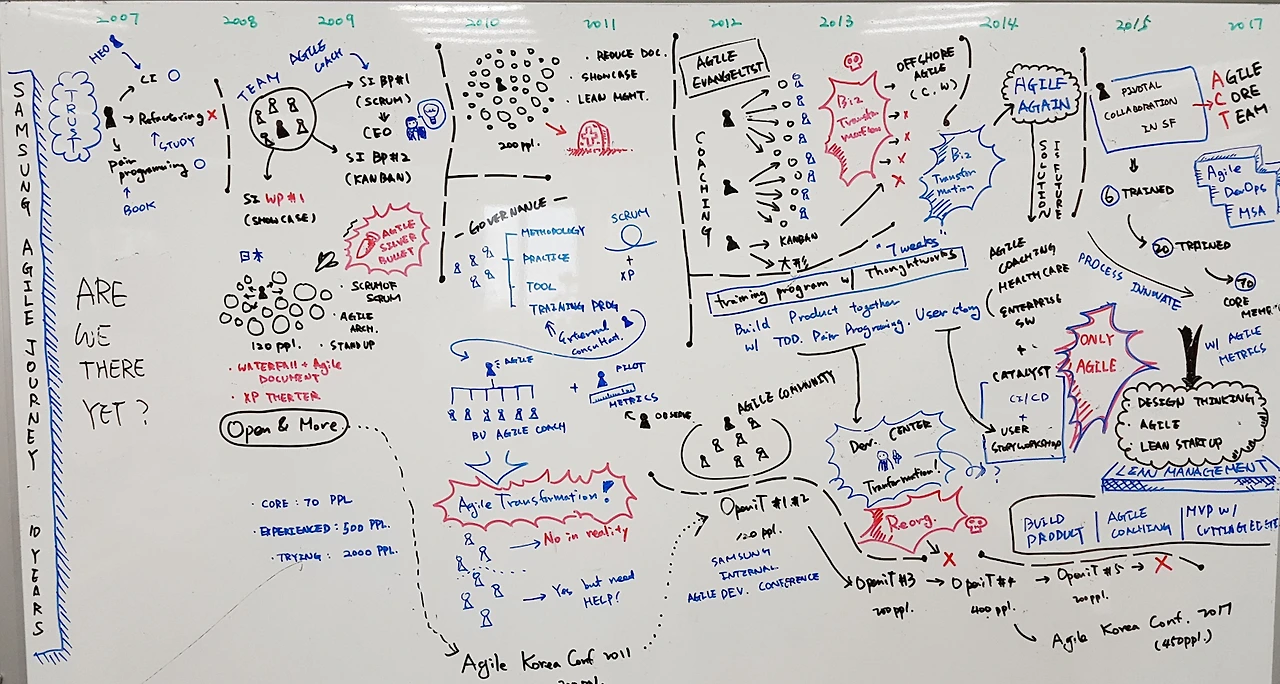 2007
2008
2009
2010
2011
2012
2013
2014
2015
2017
SAMSUNG AGILE JOURNEY 10 YEARS
HEO
TRUST
CI
Refactoring X
STUDY
Pair
programing
BOOK
ARE
WE
THERE
YET?
TEAM
AGILE
COACH
SI BP#1
(SCRUM)
CEO
SI BP#2
(KANBAN)
SI WP#1
(SHOWCASE)
AGILE
SILVER
BULLET
日本
• SCRUM OF
SCRUM
• AGILE
ARCH.
• STANDUP
120 PPL.
• WATERFALL + Agile
DOCUMENT
• XP THEATER
Open & More
• CORE : 70 PPL
• EXPERIENCED : 500 PPL.
• TRYING : 2000 PPL.
• REDUCE DOC.
• SHOWCASE
• LEAN MGMT.
200 ppl.
GOVERNANCE
METHODOLOGY
PRACTICE
TOOL
TRAINING PROG
SCRUM
+
XP
External
consultant.
: AGILE
+
PILOT
METRICS
OBSERVE
BU AGILE COACH
Agile Transformation!
No in reality
Yes but need
HELP!
Agile Korea Conf 2011
AGILE
EVANGELIST
COACHING
KANBAN
Biz
OFFSHORE
AGILE
(C.W)
X
X
X
X
Biz
Transfor
mation
"7 weeks"
training program w/ Thoughtworks
Build Product together
w/ TDD. Pair Programing. User story
AGILE COMMUNITY
OpeniT #1, #2
120 ppl.
SAMSUNG
INTERNAL
AGILE DEV. CONFERENCE
Dev. CENTER
Tranformation!
?
Reorg.
X
OpeniT #3
200 ppl.
OpeniT #4
400 ppl.
OpeniT #5
200 ppl.
X
Agile Korea Conf. 2017
(450 ppl.)
AGILE
AGAIN
SOLUTION
IS FUTURE
AGILE
COACHING
HEALTHCARE
ENTERPRISE
SW
+
CATALYST
CI/CD
+
USER
STORY WORKSHOP
ONLY
AGILE
PIVOTAL
COLLABORATION
IN SF
AGILE
CORE
TEAM
6 TRAINED
20 TRAINED
70
CORE
Agile
DevOps
MSA
PROCESS INNOVATE
W/ AGILE
METRICS
• DESIGN THINKING
• AGILE
• LEAN STARTUP
LEAN MANAGEMENT
BUILD
PRODUCT
AGILE
COACHING
MVP W/